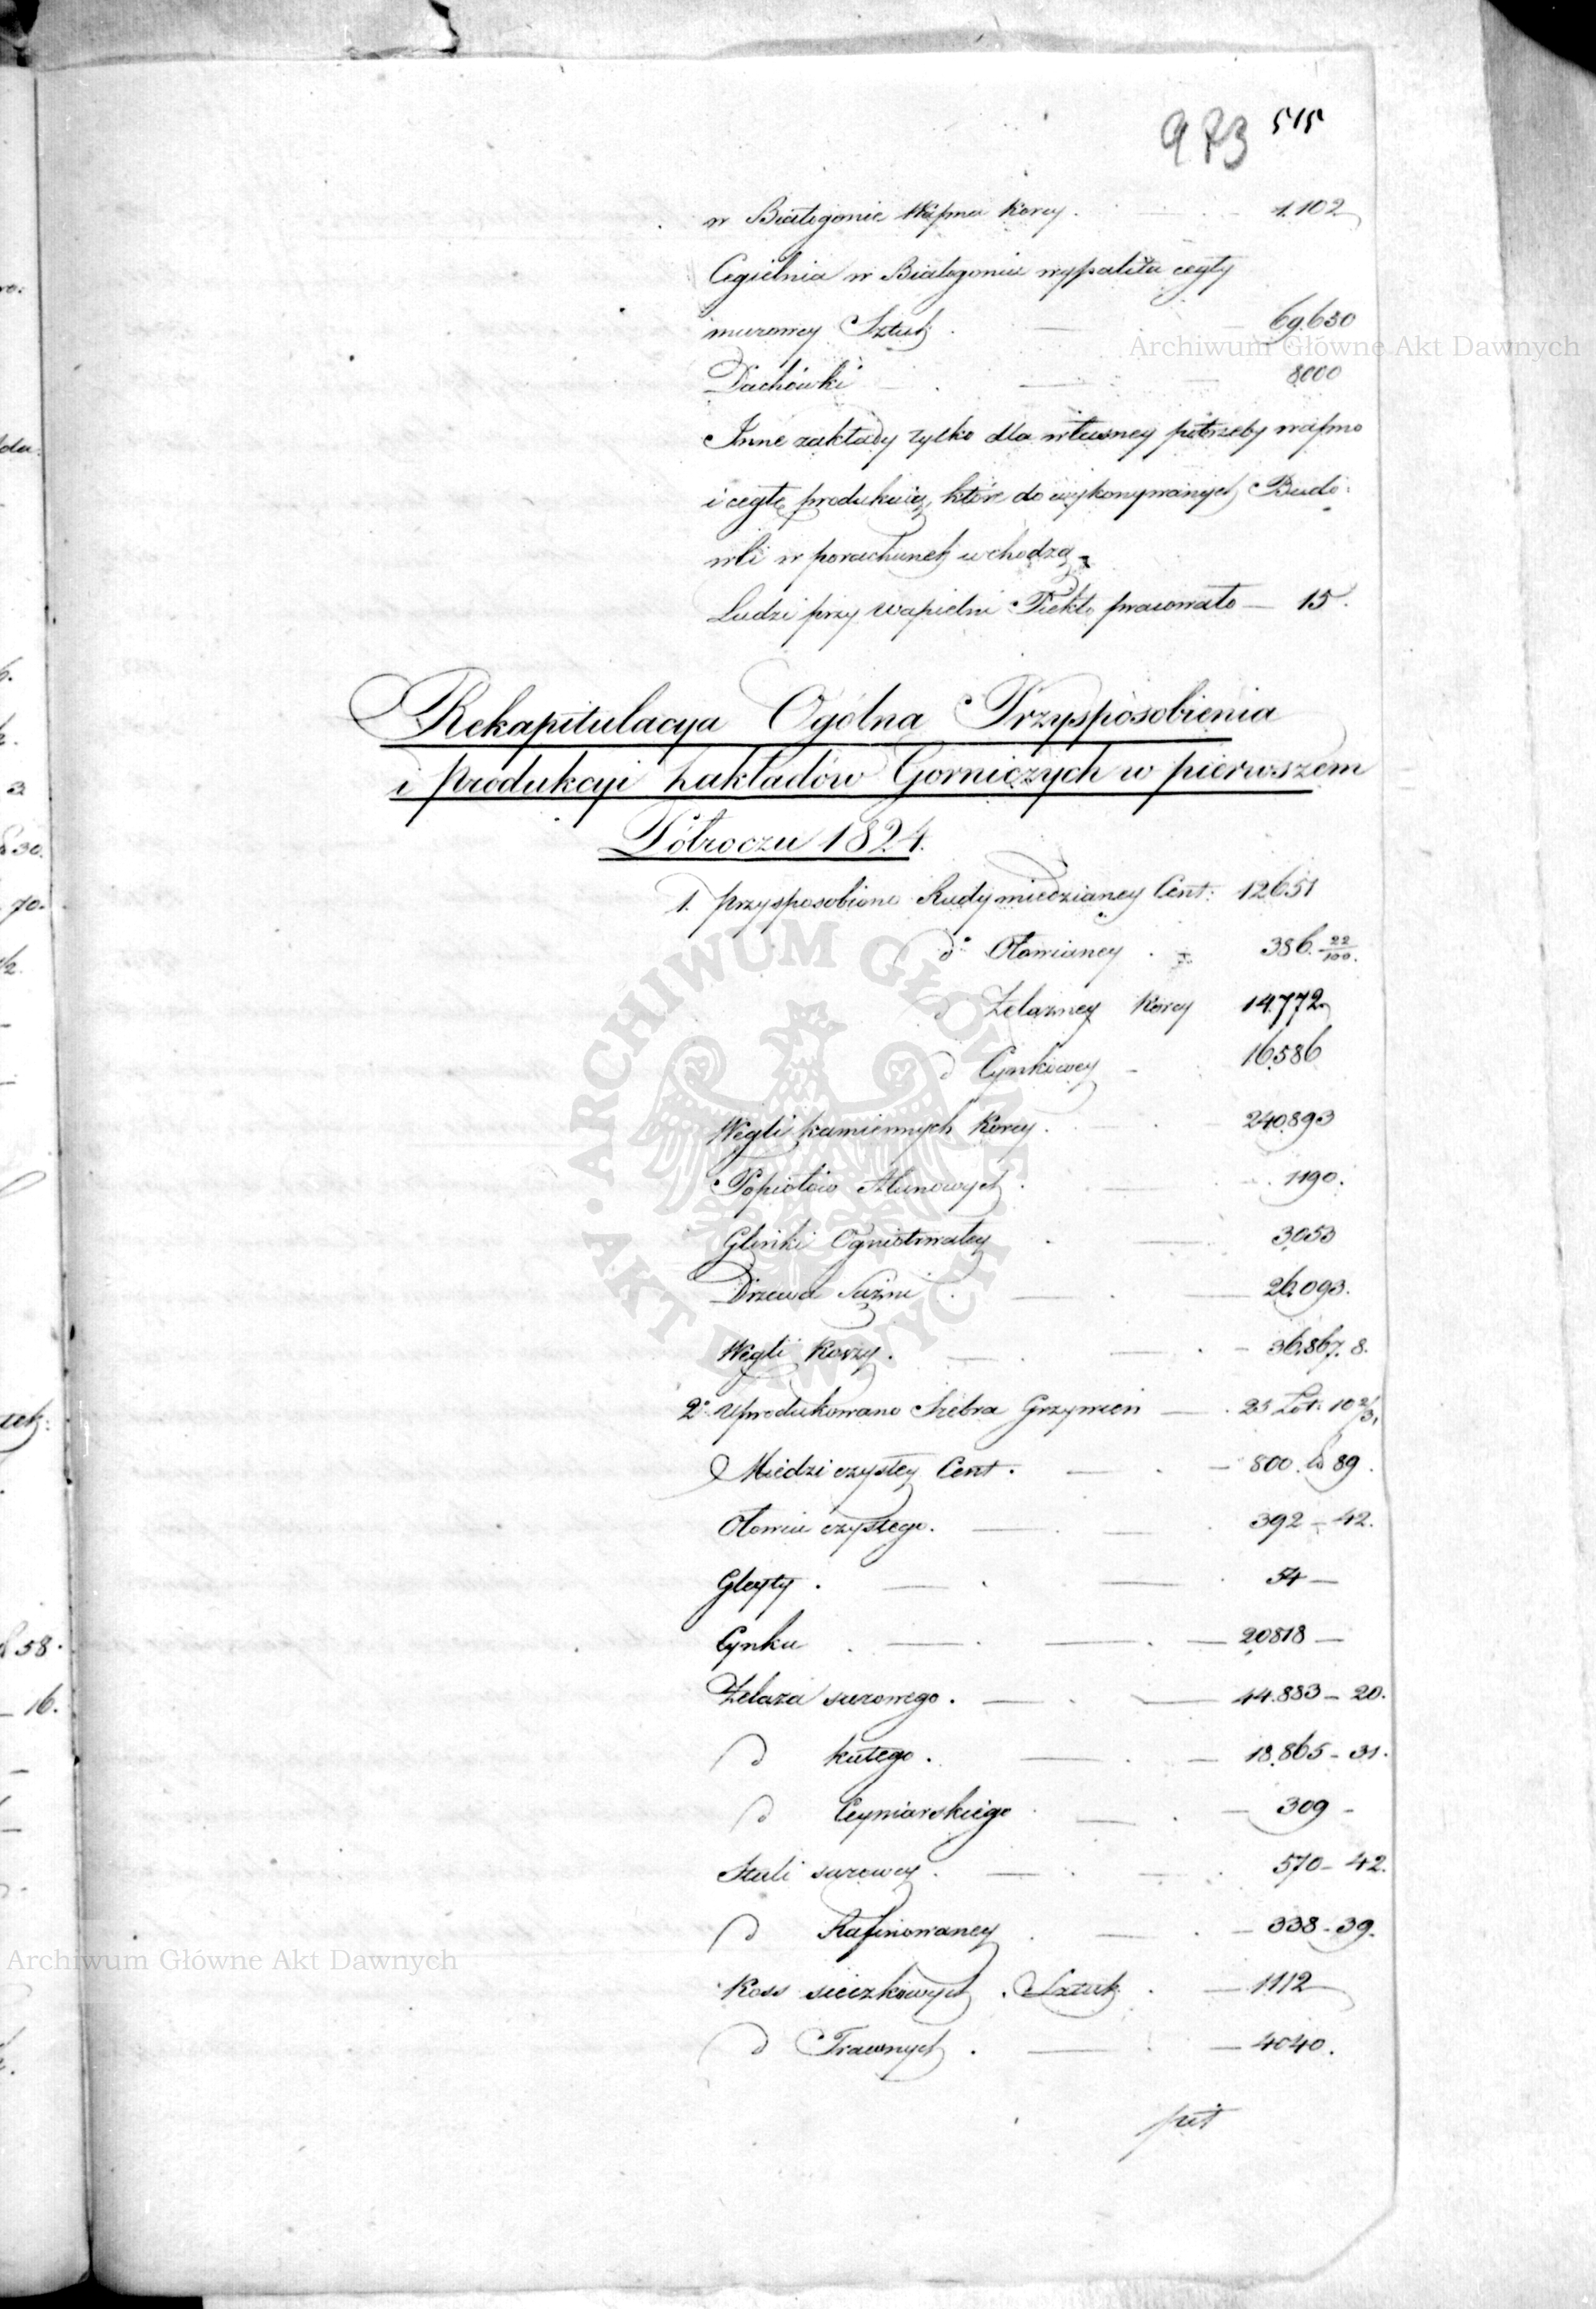 973 515
w Białogonie Wapna Korcy. 1.102
Cegielnia w Białogonie wypaliła cegły
murowey Sztuk . 69.630
Dachówki 8000
Inne zakłady tylko dla własney potrzeby wapno
i cegłę produkuią, które do wykonywanych Budo:
wli w porachunek wchodzą
Ludzi przy Wapielni Piekło pracowało — 15.
Rekapitulacya Ogólna Przysposobienia
i Produkcyi Zakładów Gorniczych w pierwszem
Półroczu 1824.
1. Przysposobiono Rudy miedzianey Cent: 12651
do Ołowianey . 386. 22/100.
d Żelazney Korcy 14.772
d Cynkowey - 16.586
Węgli kamiennych Korcy. 240.893
Popiołów Ałunowych . 1190.
Glinki Ogniotrwałey . — 3.053
Drzewa Sążni . — 26.093.
Węgli Korcy. — 36.867. 8.
2o Uprodukowano Srebra Grzywien — 23 Lot: 10 2/3,
Miedzi czystey Cent. — 800. lb 89.
Ołowiu czystego. — 392 — 42.
Gleyty . — 54 —
Cynku . — 20818 —
Żelaza surowego. — 44.883 — 20.
d kutego. — 18.865 - 31.
d Ceyniarskiego — 309 -
Stali surowey. — 570 - 42.
d Rafinowaney . — 338 - 39.
Koss sieczkowych . Sztuk . — 1112
d Trawnych . — 4040.
pił
Archiwum Główne Akt Dawnych
ARCHIWUM GŁÓWNE AKT DAWNYCH
Archiwum Główne Akt Dawnych